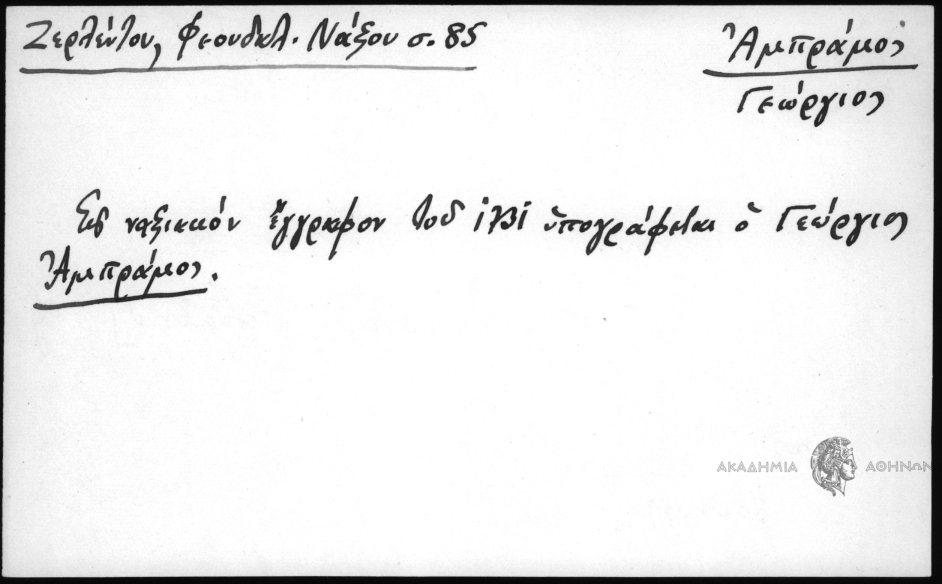 Ζερλέντου, Φεουδαλ. Νάξου σ. 85
Ἀμπράμος
Γεώργιος
Εἰς ναξιακὸν ἔγγραφον τοῦ 1731 ὑπογράφεται ὁ Γεώργιος
Ἀμπράμος.
ΑΚΑΔΗΜΙΑ ΑΘΗΝΩΝ